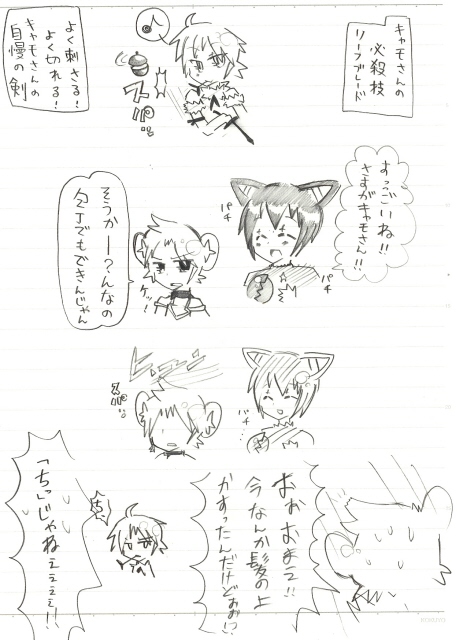 キャモさんの
必殺技
リーフブレード
よく刺さる!
よく切れる!
キャモさんの
自慢の剣
スパ
すっごいね!!
さすがキャモさん!!
パチ
パチ
そうかー?んなの
包丁でもできんじゃん
ケッ!
ビューン
パチ
おぉおまえ!!
今なんか髪のよ
かすったんだけどぉお!?
ちっ
「ちっ」じゃねぇ
ぇぇぇぇ!!